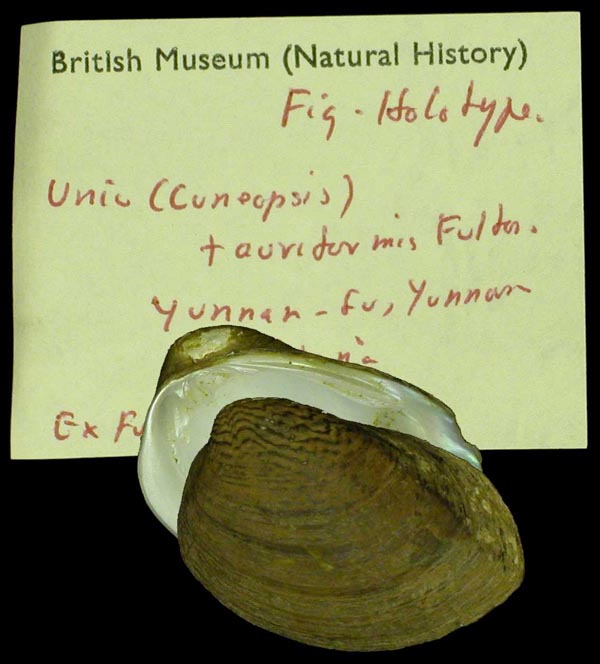 British Museum (Natural History)
Fig. Holotype.
Unio (Cuneopsis)
tauriformis Fulton.
Yunnan-fu, Yunnan
Ex Fu